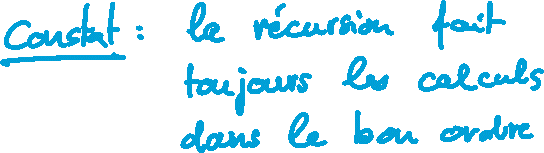 Constat : la récursion fait
toujours les calculs
dans le bon ordre